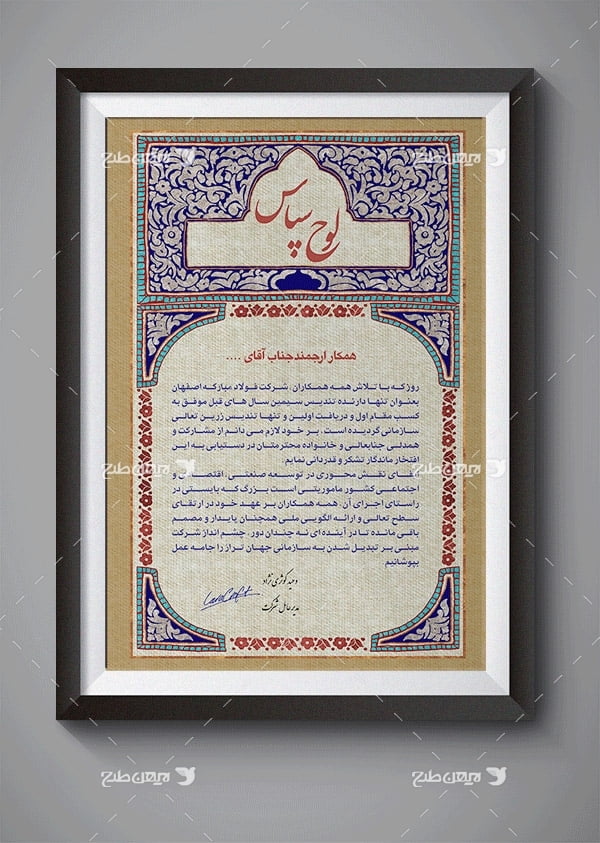 لوح سپاس
همکار ارجمند جناب آقای ....
روز که با تلاش همه همکاران، شرکت فولاد مبارکه اصفهان
بعنوان تنها دارنده تندیس سیمین سال های قبل موفق به
کسب مقام اول و دریافت اولین و تنها تندیس زرین تعالی
سازمانی گردیده است، بر خود لازم می دانم از مشارکت و
همدلی جنابعالی و خانواده محترمتان در دستیابی به این
افتخار ماندگار تشکر و قدردانی نمایم.
نقش محوری در توسعه صنعتی، اقتصادی و
اجتماعی کشور ماموریتی است بزرگ که بایستی در
راستای اجرای آن، همه همکاران بر عهد خود در ارتقای
سطح تعالی و ارائه الگویی ملی همچنان پایدار و مصمم
باقی مانده تا در آینده ای نه چندان دور، چشم انداز شرکت
مبنی بر تبدیل شدن به سازمانی جهان تراز را جامه عمل
بپوشانیم
وحید کوثری نژاد
مدیرعامل شرکت
میهن طرح
میهن طرح
میهن طرح
میهن طرح
میهن طرح
میهن طرح